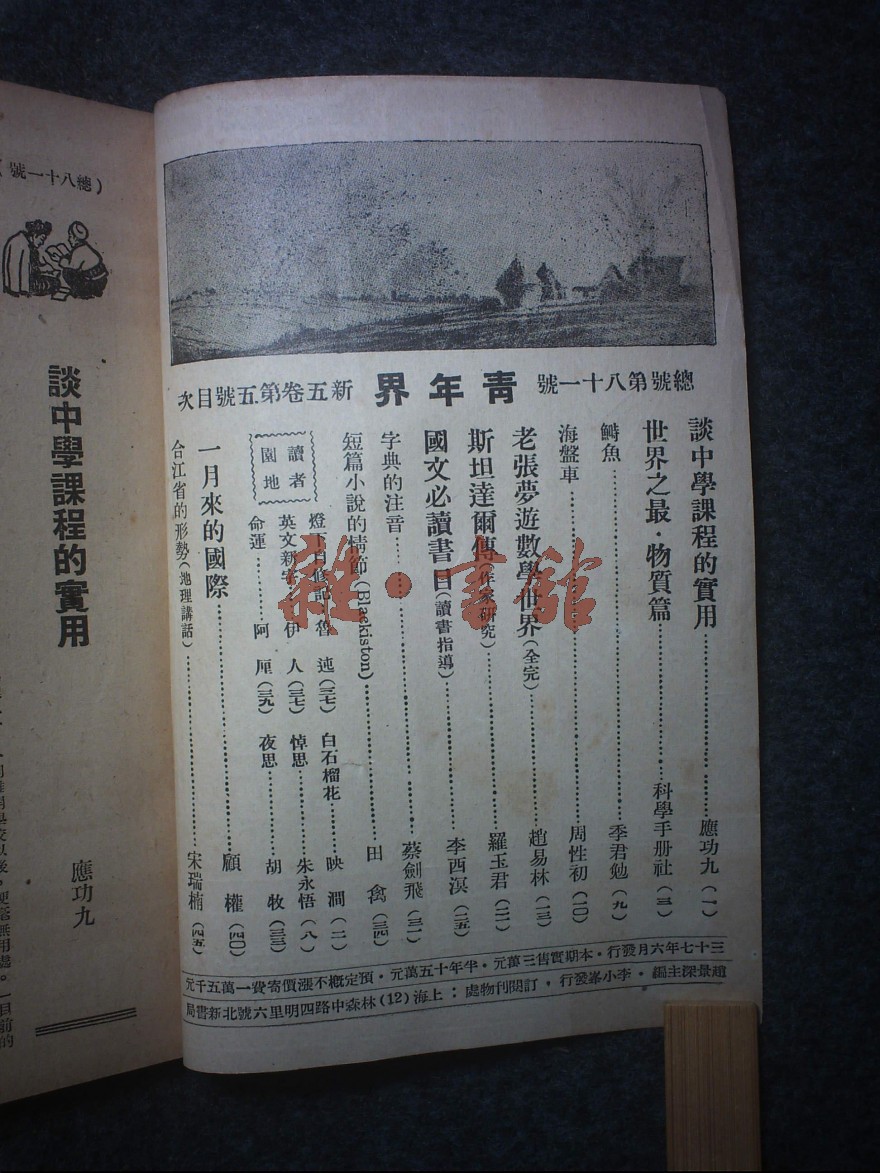 總號第八十一號 青年界 新五卷第五號目次
談中學課程的實用………應功九(一)
世界之最·物質篇………科學手册社(三)
鰣魚………季君勉(九)
海盤車………周性初(一〇)
老張夢遊數學世界(全完)………趙易林(一三)
斯坦達爾傳(作家研究)………羅玉君(二一)
國文必讀書目(讀書指導)………李西溟(二五)
字典的注音………蔡劍飛(三一)
短篇小說的情節(Blackiston)………田禽(三四)
讀者園地
燈下自修記 魯迍(三七) 白石榴花………映澗(二)
英文新字 伊人(三七) 悼思………朱永悟(八)
命運………阿厘(三九) 夜思………胡牧(三三)
一月來的國際………顧權(四〇)
合江省的形勢(地理講話)………宋瑞楠(四五)
三十七年六月發行·本期實售三萬元·半年十五萬元·預定概不漲價寄費一萬五千元
趙景深主編·李小峯發行，訂閱刊物處：上海(12)林森中路四明里六號北新書局
(總八十一號)
談中學課程的實用
應功九
雜·書館